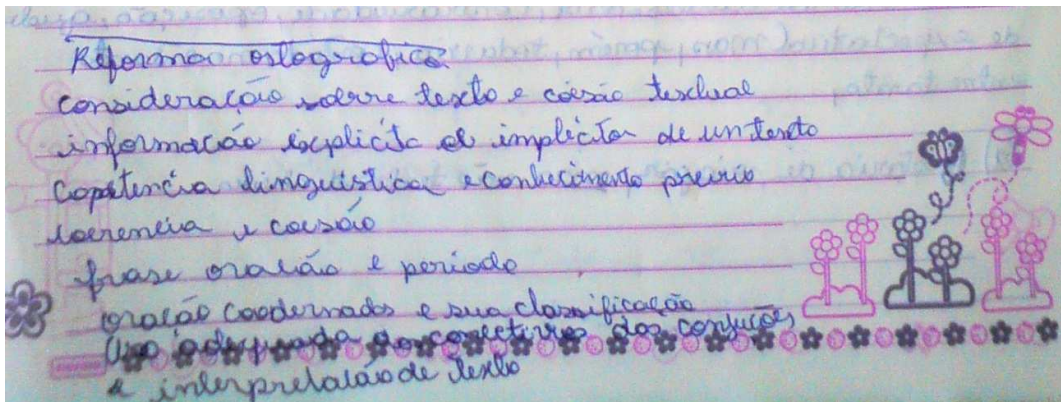 Reforma ortografica
consideração sobre texto e coesão textual
informação explicíta e implícita de un texto
Copetência linguística e conhecimento prévio
coerencia e coesão
frase oração e período
oração coodernados e sua classificação
Uso adequada dos conectivos das conjuções
e interpretação de texto